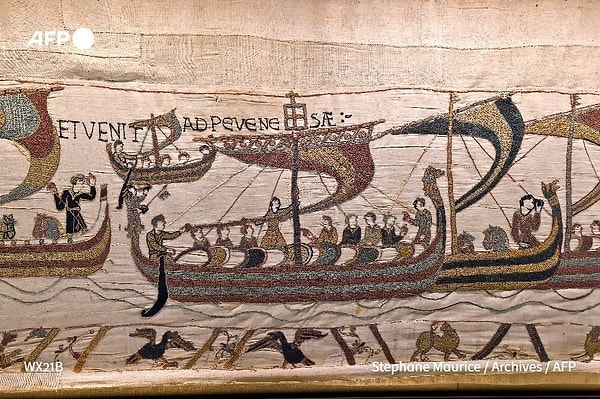 AFP
ET VENIT AD PEVENE SÆ :-
WX21B
Stephane Maurice / Archives / AFP